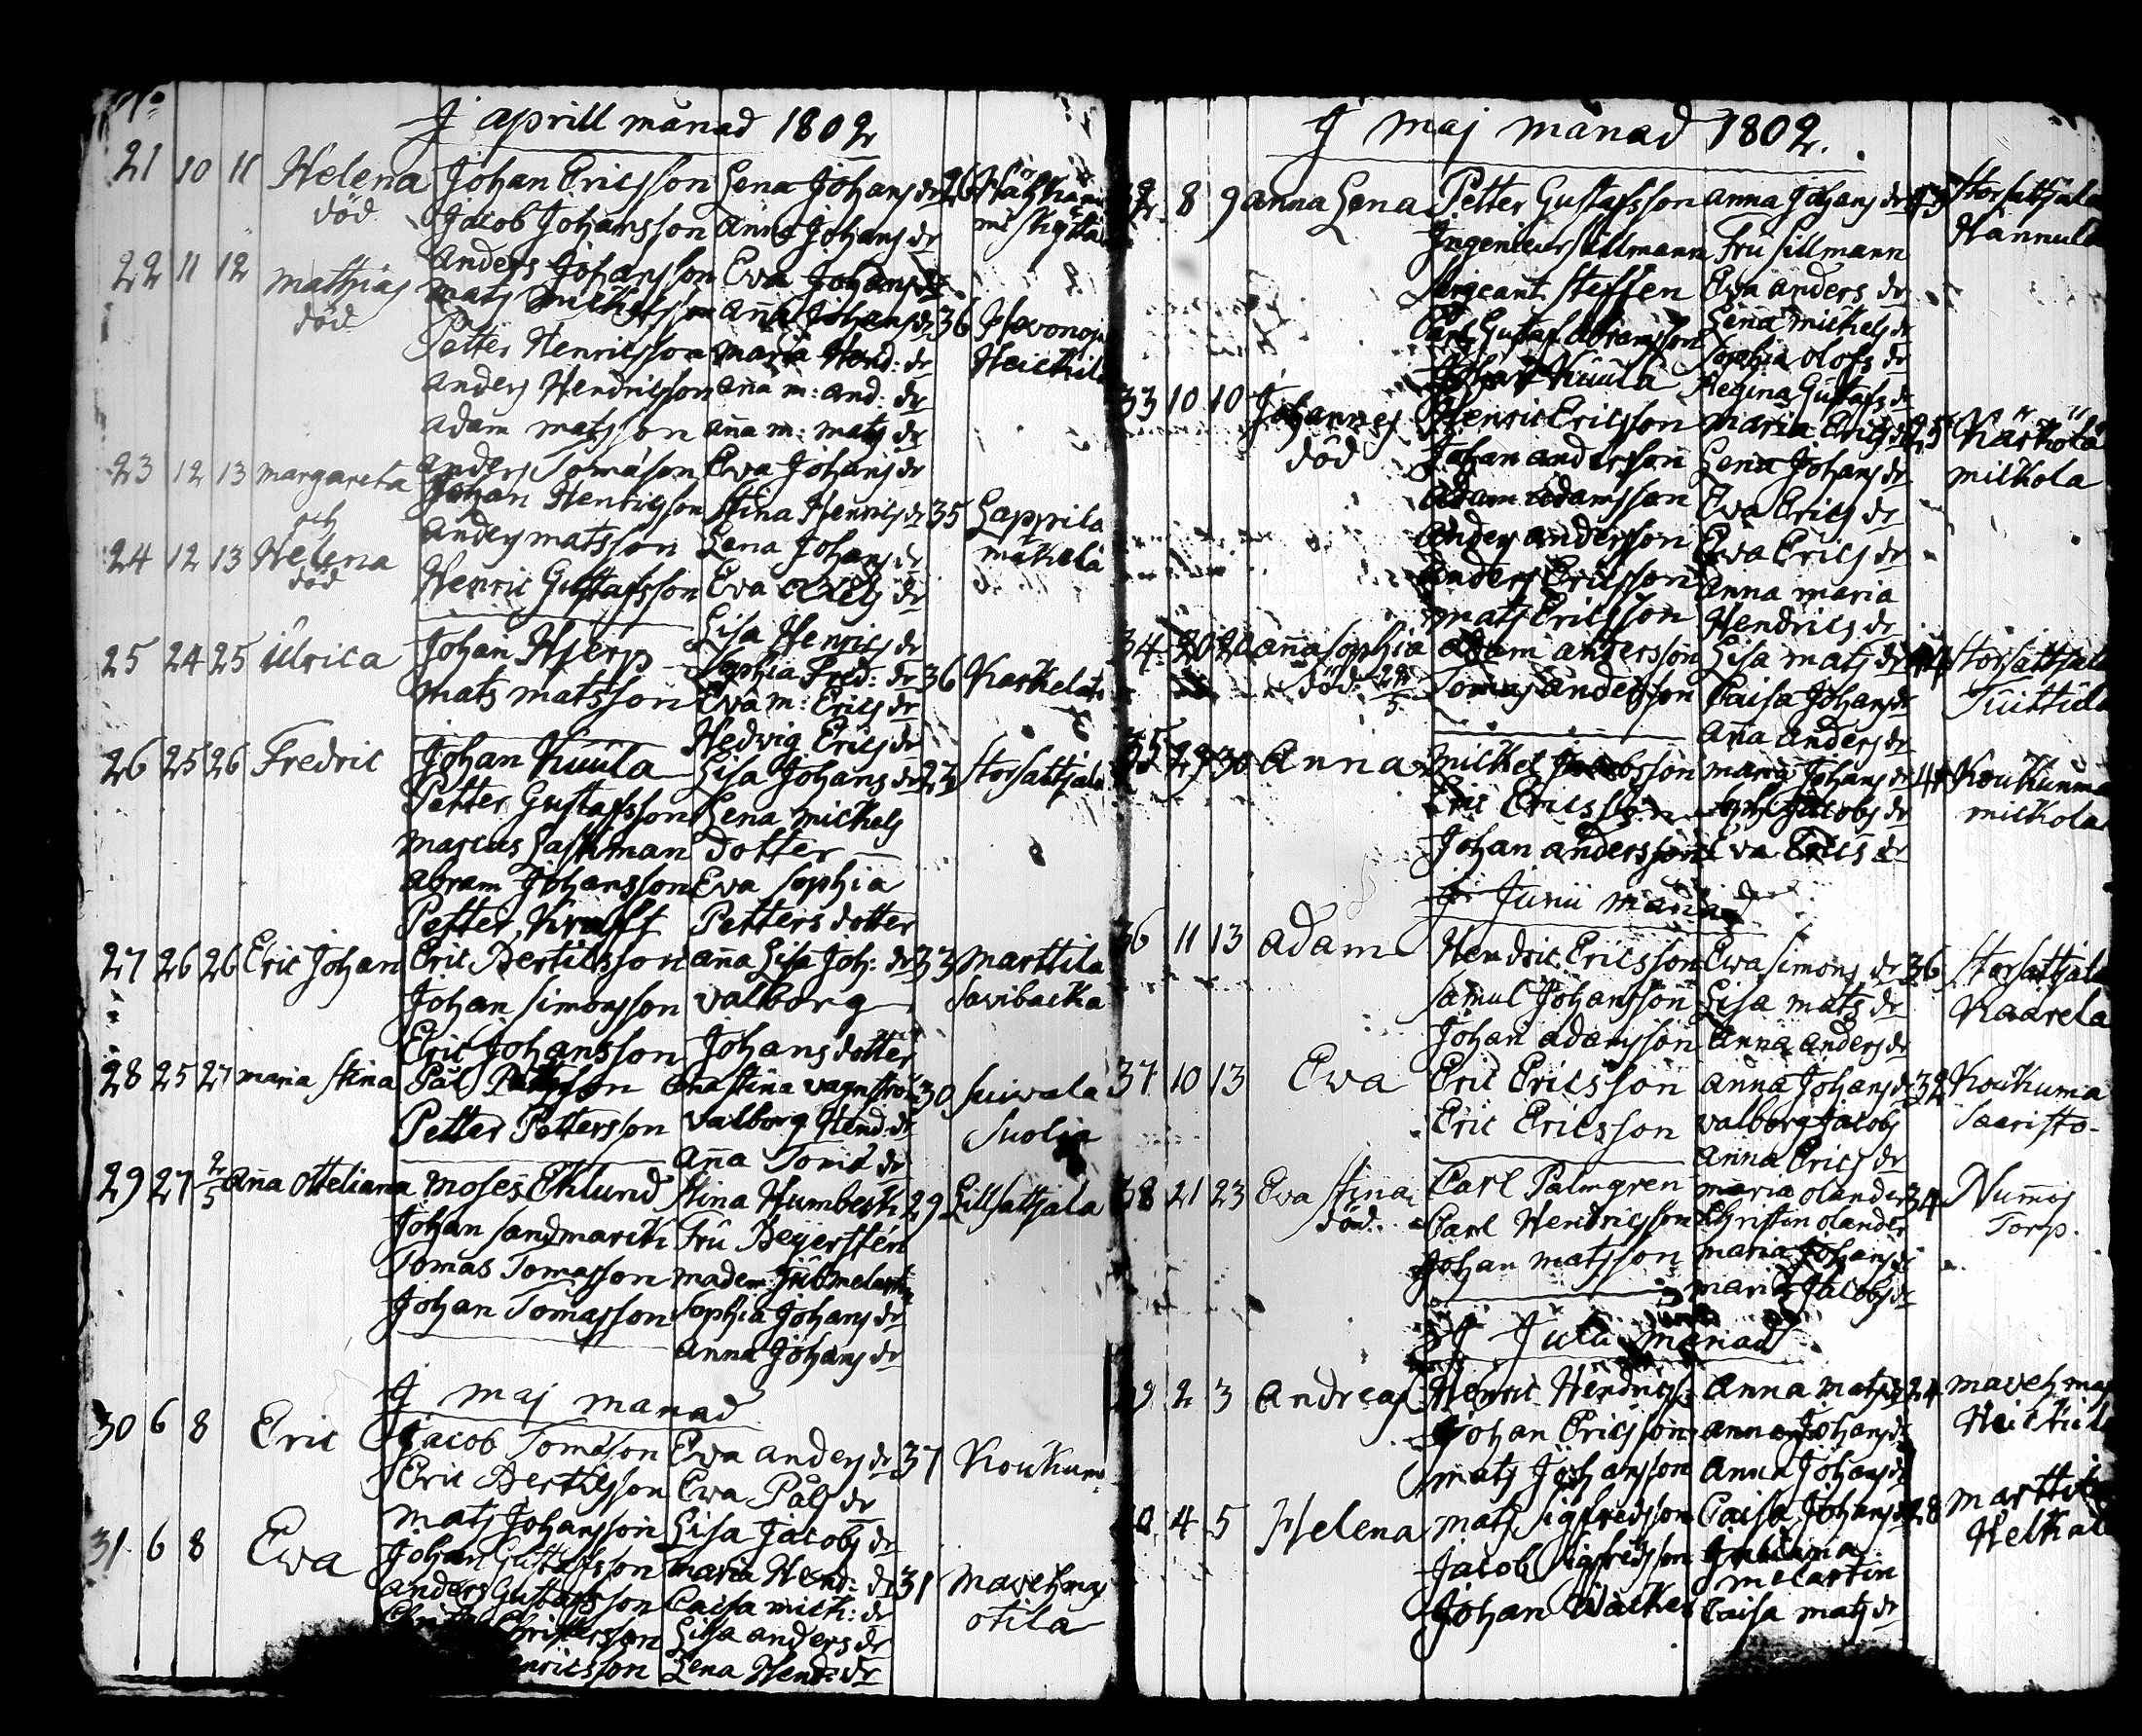 No
J aprill månad 1802
21 10 11 Helena Johan Ericsson Lena Johans dr 26
död Jacob Johansson Anna Johans dr
Anders Johansson Eva Johans dr
22 11 12 Mathias Mats Michelsson Anna Johans dr 36
död Petter Henricsson Maria Hend: dr Heickilä
Anders Hendricsson Aña M: And: dr
Adam Matsson Aña M: Mats dr
23 12 13 Margareta Anders Tomasson Eva Johans dr
och Johan Henricsson Stina Henrics dr 35 Lappila
Anders Matsson Lena Johans dr Mäkelä
24 12 13 Helena Henric Gustafsson Eva dr
död
25 24 25 Ulrica Johan Hjerp Lisa Henrics dr
Mats Matsson Sophia Fred: dr 36
Eva M: Erics dr
Hedvig Erics dr
26 25 26 Fredric Johan Kuula Lisa Johans dr 23 Storsattjala
Petter Gustafsson Lena Michels
Marcus Lastman dotter
Abram Johansson Eva Sophia
Petter Krafft Petters dotter
27 26 26 Eric Johan Eric Bertilsson Aña Lisa Joh: dr 33 Marttila
Johan Simonsson Valborg Savibacka
Eric Johansson Johans dotter
28 25 27 Maria Stina Pål 30 Suivala
Petter Pettersson Valborg Hend: dr Suolia
Aña Toms dr
29 27 2/5 Aña Otteliana Moses Eklund Stina Humberti 29 Lillsattjala
Johan Sandmark Fru Beijersten
Tomas Tomasson Madem:
Johan Tomasson Sophia Johans dr
Anna Johans dr
J maj månad
30 6 8 Eric Jacob Tomasson Eva Anders dr 37
Eric Bertilsson Eva Påls dr
Mats Johansson Lisa Jacobs dr
31 6 8 Eva Johan Gustafsson Maria Hend: dr 31
Anders Gustafsson Caisa Mich: dr Otila
Christersson Lisa Anders dr
Lena Hend: dr
J maj månad 1802.
32 8 9 Anna Lena Petter Gustafsson Anna Johans dr Storsattjala
Ingenieur Sillmann Fru Sillmann Hannula
Steffen Eva Anders dr
Carl Gustaf Abramsson Lena Michels dr
Johan Kuula Sophia Olofs dr
Regina Gustafs dr
33 10 10 Johannes Henric Ericsson Maria Erics dr 25 Kärkölä
död Johan Andersson Lena Johans dr Mickola
Adam Adamsson Eva Erics dr
Anders Andersson Eva Erics dr
Anders Ericsson Anna Maria
Mats Ericsson Hendrics dr
34 20 20 Aña Sophia Adam Andersson Lisa Mats dr Storsattjala
död 29/5 Tomas Andersson Caisa Johans dr Tuittula
Aña Anders dr
35 29 30 Anna Michel Jacobsson Maria Johans dr Koukunma
Eric Ericsson Jacobs dr Mickola
Johan Andersson Eva Erics dr
J Junii månad
36 11 13 Adam Hendric Ericsson Eva Simons dr 36 Storsattjala
Samul Johansson Lisa Mats dr Kaarela
Johan Adamsson Anna Anders dr
37 10 13 Eva Eric Ericsson Anna Johans dr 32 Koukuma
Eric Ericsson Valborg Jacobs Saaristo
Anna Erics dr
38 21 23 Eva Stina Carl Palmgren Maria Olander 34 Numois
död Carl Hendricsson Christin Olander Torp.
Johan Matsson Maria Johans dr
Maria Jacobs dr
J Julii månad
39 2 3 Andreas Henric Hendricss: Anna Mats dr 24
Johan Ericsson Anna Johans dr
Mats Johansson Anna Johans dr
40 4 5 Helena Mats Sigfredsson Caisa Johans dr 28 Marttila
Jacob Sigfredsson Juliana
Melartin
Johan Caisa Mats dr